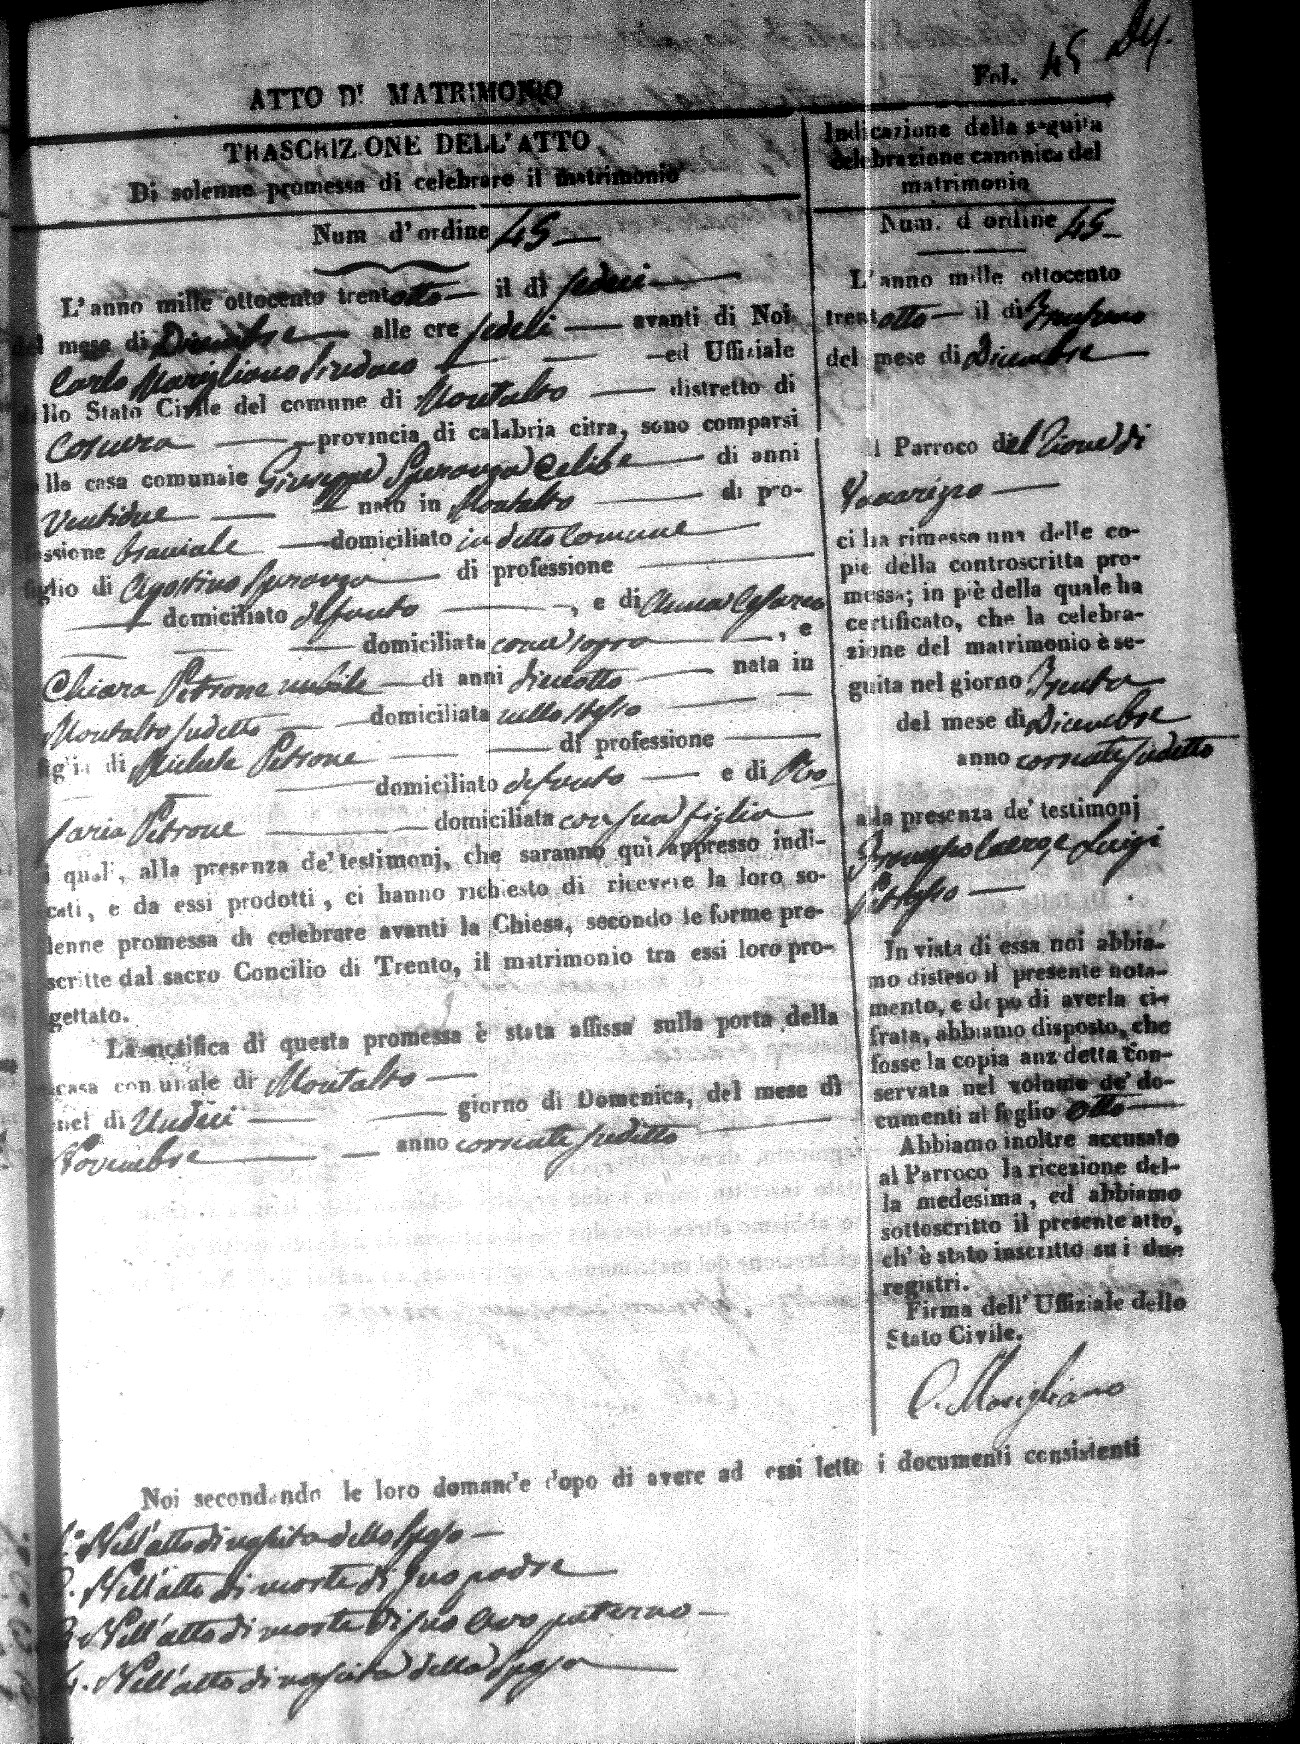 Fol. 45
ATTO DI MATRIMONIO
TRASCRIZIONE DELL'ATTO
Di solenne promessa di celebrare il matrimonio
Num d'ordine 45
L'anno mille ottocento trentotto il dì sedeci
del mese di Dicembre alle ore sedeci avanti di Noi
Carlo Marigliano Sindaco ed Uffiziale
dello Stato Civile del comune di Montalto distretto di
Cosenza provincia di calabria citra, sono comparsi
nella casa comunale Giuseppe Speranza Celibe di anni
Ventidue nato in Montalto di pro-
fessione braciale domiciliato in detto Comune
figlio di Agostino Speranza di professione
domiciliato defonto , e di Anna Cesareo
domiciliata come sopra , e
Chiara Petrone nubile di anni dieciotto nata in
Montalto sudetto domiciliata nello stesso
figlia di Michele Petrone di professione
domiciliato defonto e di
Maria Petrone domiciliata con sua figlia
i quali, alla presenza de' testimonj, che saranno quì appresso indi-
cati, e da essi prodotti, ci hanno richiesto di ricevere la loro so-
lenne promessa di celebrare avanti la Chiesa, secondo le forme pre-
scritte dal sacro Concilio di Trento, il matrimonio tra essi loro pro-
gettato.
La notifica di questa promessa è stata affissa sulla porta della
casa comunale di Montalto
nel dì Undeci giorno di Domenica, del mese dì
Novembre anno corrente sudetto
Indicazione della seguita
celebrazione canonica del
matrimonio
Num. d'ordine 45
L'anno mille ottocento
trentotto il dì Trentuno
del mese di Dicembre
Il Parroco del Rione di
Vaccarizzo
ci ha rimesso una delle co-
pie della controscritta pro-
messa; in piè della quale ha
certificato, che la celebra-
zione del matrimonio è se-
guita nel giorno Trenta
del mese di Dicembre
anno corrente sudetto
alla presenza de' testimonj
e Luigi
In vista di essa noi abbia-
mo disteso il presente nota-
mento, e dopo di averla ci-
frata, abbiamo disposto, che
fosse la copia anzidetta con-
servata nel volume de' do-
cumenti al foglio otto
Abbiamo inoltre accusato
al Parroco la ricezione del-
la medesima, ed abbiamo
sottoscritto il presente atto,
ch' è stato inscritto su i due
registri.
Firma dell' Uffiziale dello
Stato Civile.
C. Marigliano
Noi secondando le loro domande dopo di avere ad essi letto i documenti consistenti
1.° Nell'atto di nascita dello sposo
2. Nell'atto di morte di suo padre
3. Nell'atto di morte di suo avo paterno
4. Nell'atto di nascita della sposa